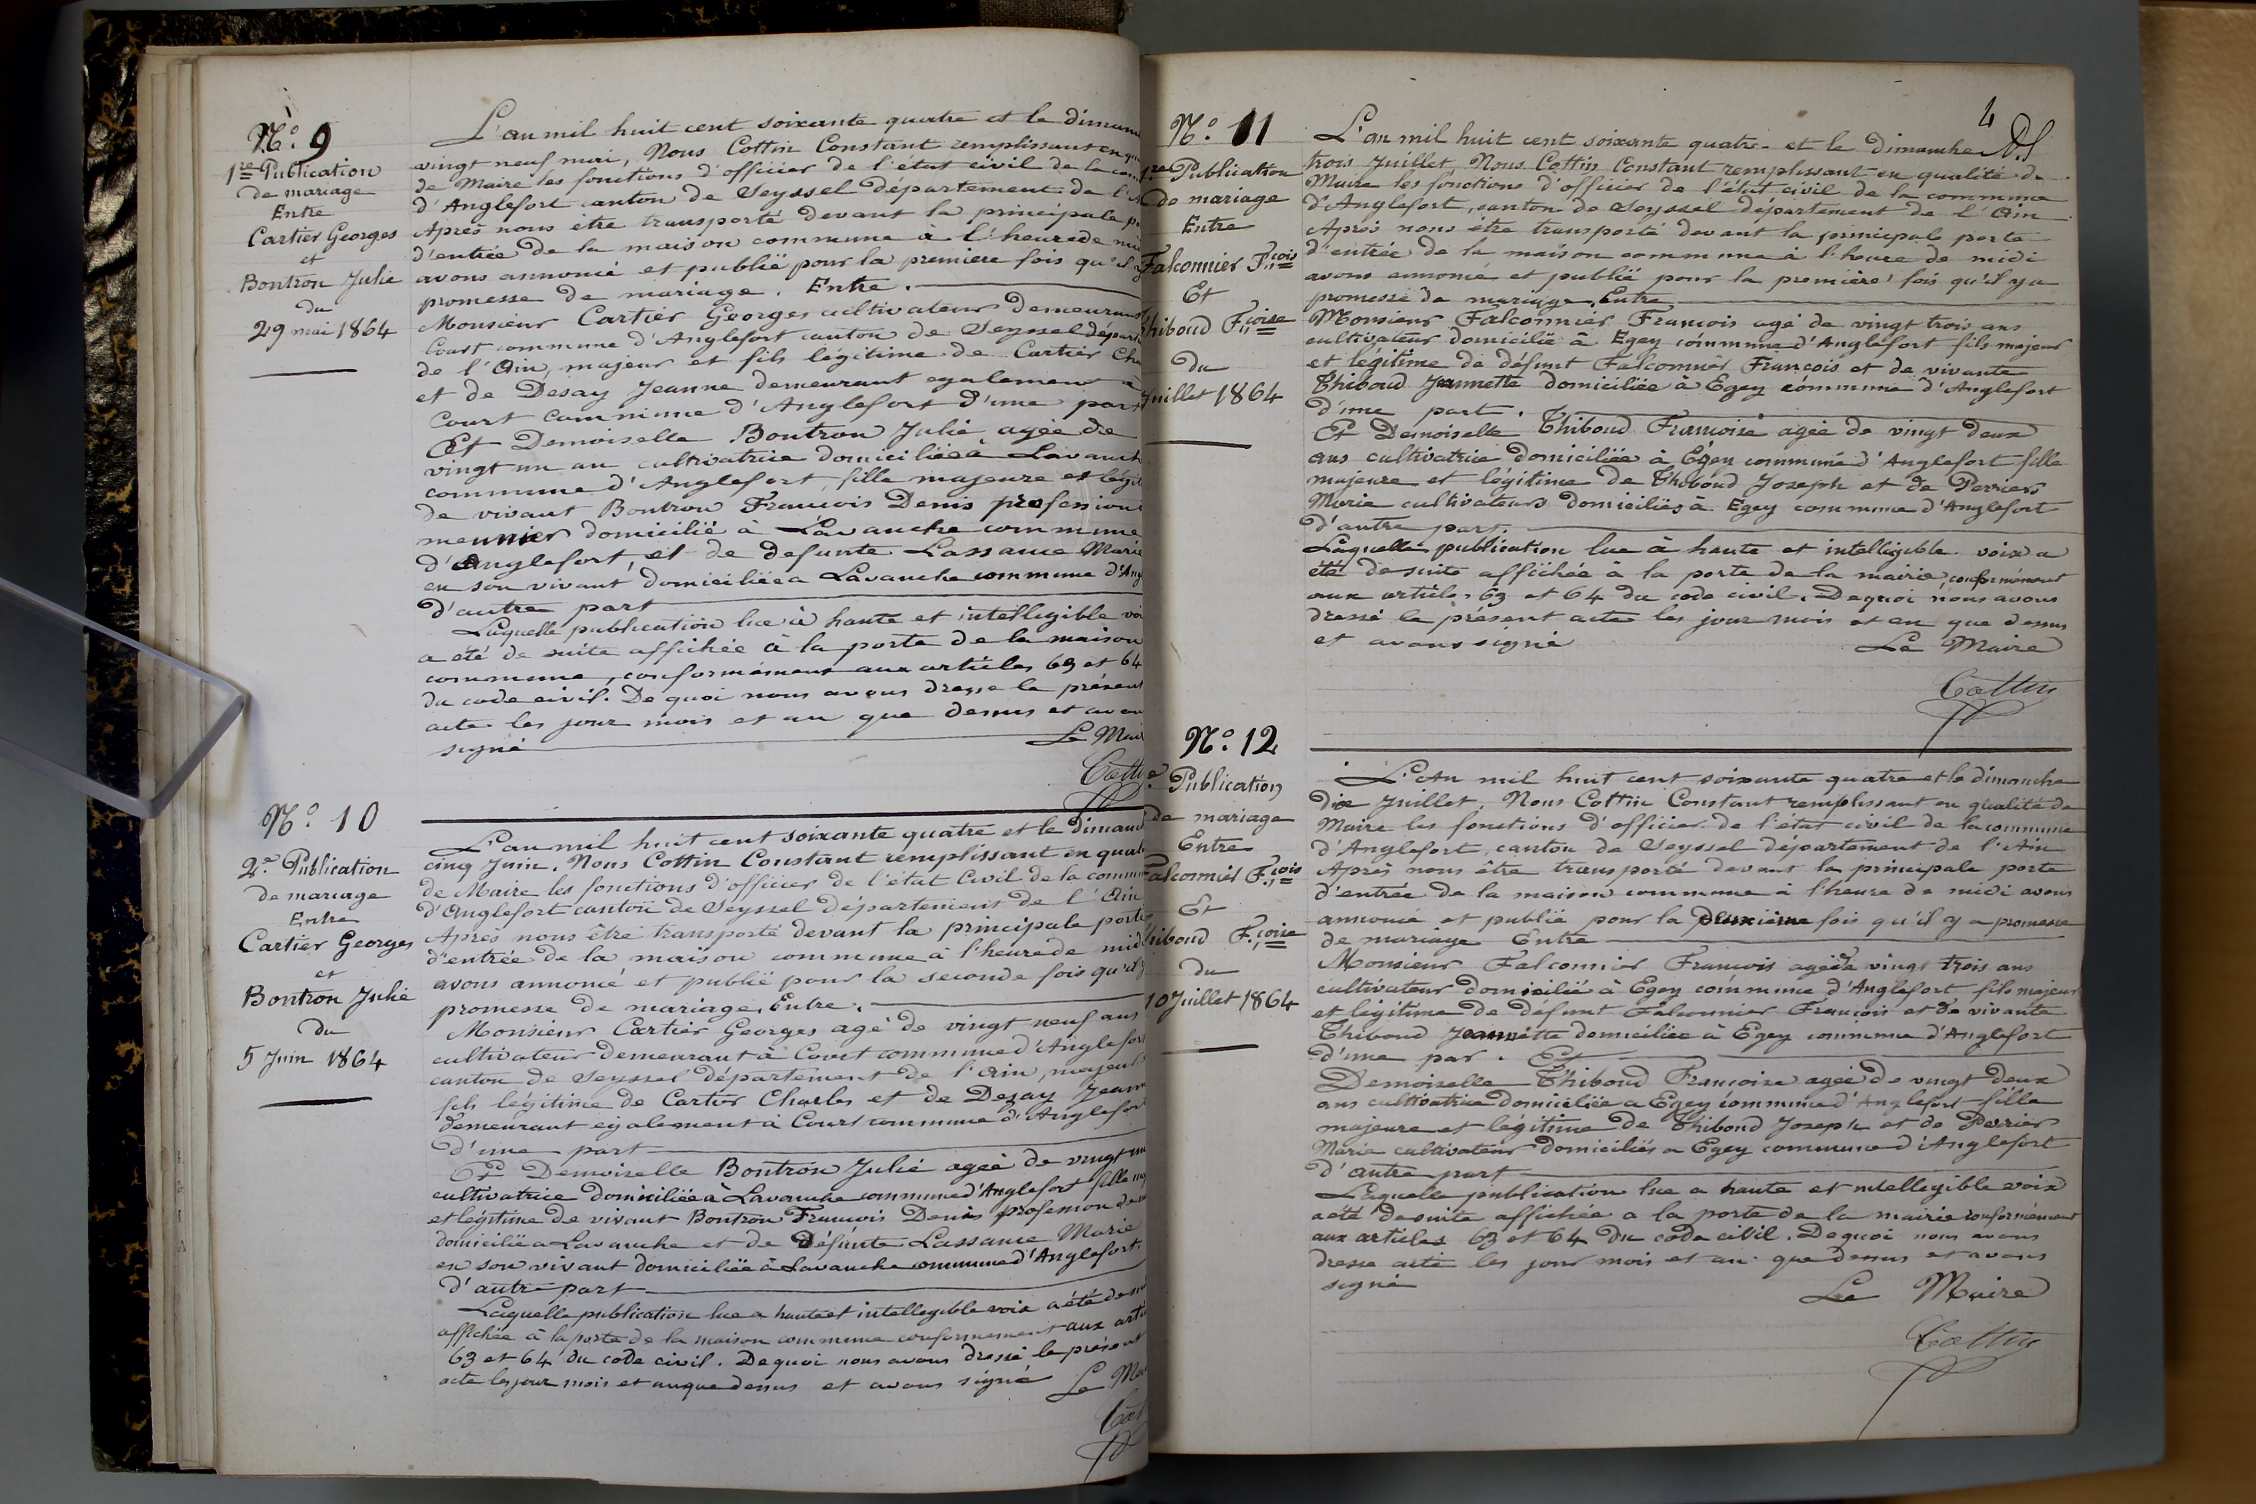 N.° 9
1re Publication
de mariage
Entre
Cartier Georges
et
Bontron Julie
du
29 mai 1864
L'an mil huit cent soixante quatre et le diman
vingt neuf mai, Nous Cottin Constant remplissant en
de Maire les fonctions d'officier de l'état civil de la
d'Anglefort canton de Seyssel département de l'
Après nous être transporté devant la principale
d'entrée de la maison commune à l'heure de
avons annoncé et publié pour la premiere fois qu'il
promesse de mariage. Entre.
Monsieur Cartier Georges cultivateur demeurant
Court commune d'Anglefort canton de Seyssel
de l'Ain, majeur et fils légitime de Cartier Cha
et de Desay Jeanne demeurant egalement a
Court commune d'Anglefort d'une part
Et Demoiselle Bontron Julie agée de
vingt un an cultivatrice domiciliée à Lavanch
commune d'Anglefort, fille majeure et légit
de vivant Bontron François Denis profession
meunier domicilié à Lavanche commune
d'Anglefort, et de defunte Lassance Marie
en son vivant domiciliée a Lavanche commune d'Ang
d'autre part
Laquelle publication lue à haute et intellegible voi
a été de suite affichée à la porte de la maison
commune, conformément aux articles 63 et 64
du code civil. De quoi nous avons dresse le présent
acte les jour mois et an que dessus et avon
signé
Le Mai
Cottin
N.° 10
2e Publication
de mariage
Entre
Cartier Georges
et
Bontron Julie
du
5 Juin 1864
L'an mil huit cent soixante quatre et le dimanc
cinq Juin, Nous Cottin Constant remplissant en quali
de Maire les fonctions d'officier de l'état Civil de la commun
d'Anglefort canton de Seyssel département de l'Ain
Après nous être transporté devant la principale porte
d'entrée de la maison commune à l'heure de mid
avons annoncé et publié pour la seconde fois qu'il y
promesse de mariage, Entre.
Monsieur Cartier Georges agé de vingt neuf ans
cultivateur demeurant à Court commune d'Anglefort
canton de Seyssel département de l'Ain, majeur
fils légitime de Cartier Charles et de Dezay Jeann
demeurant egalement à Court commune d'Anglefort
d'une part
Et Demoiselle Bontron Julie ageé de vingt un
cultivatrice domiciliée à Lavanche commune d'Anglefort fille
et légitime de vivant Bontron François Denis profession de
domicilié a Lavanche et de Défunte Lassance Marie
en son vivant domiciliée à Lavanche commune d'Anglefort.
d'autre part
Laquelle publication lue a haute et intellegible voix a été de
affichée à la porte de la maison commune conformement aux arti
63 et 64 du code civil. De quoi nous avons dressé le présent
acte les jour mois et an que dessus et avons signé
Le Mai
Cot
4
N.° 11
1re Publication
de mariage
Entre
Falconnier F.çois
Et
hiboud F.çoise
Du
Juillet 1864
L'an mil huit cent soixante quatre et le Dimanche
trois Juillet Nous Cottin Constant remplissant en qualité de
Maire les fonctions d'officier de l'état civil de la commune
d'Anglefort, canton de Seyssel département de l'Ain
Après nous être transporté devant la principale porte
d'entrée de la maison commune à l'heure de midi
avons annoncé et publié pour la première fois qu'il y a
promesse de mariage, Entre
Monsieur Falconnier François agé de vingt trois ans
cultivateur domicilié à Egey commune d'Anglefort fils majeur
et légitime de défunt Falconnier François et de vivante
Thiboud Jeannette domiciliée à Egey commune d'Anglefort
d'une part.
Et Demoiselle Thiboud Françoise agée de vingt deux
ans cultivatrice domiciliée à Egey commune d'Anglefort fille
majeure et légitime de Thiboud Joseph et de Perrier
Marie cultivateurs domiciliés à Egey commune d'Anglefort
d'autre part.
Laquelle publication lue à haute et intelligible voix a
été de suite affichée à la porte de la mairie, conformément
aux articles 63 et 64 du code civil. De quoi nous avons
dressé le présent acte les jour mois et an que dessus
et avons signé
Le Maire
Cottin
N.° 12
e Publication
de mariage
Entre
Falconnier F.çois
Et
hiboud F.çoise
du
10 Juillet 1864
L'an mil huit cent soixante quatre et le dimanche
dix Juillet, Nous Cottin Constant remplissant en qualité de
Maire les fonctions d'officier de l'état civil de la commune
d'Anglefort, canton de Seyssel département de l'Ain
Après nous être transporté devant la principale porte
d'entrée de la maison commune à l'heure de midi avons
annoncé et publié pour la deuxième fois qu'il y a promesse
de mariage Entre
Monsieur Falconnier François agé de vingt trois ans
cultivateur domicilié à Egey commune d'Anglefort fils majeur
et légitime de défunt Falconnier François et de vivante
Thiboud Jeannette domiciliée à Egey commune d'Anglefort
d'une par. Et
Demoiselle Thiboud Françoise agée de vingt deux
ans cultivatrice domiciliée a Egey commune d'Anglefort fille
majeure et légitime de Thiboud Joseph et de Perrier
Marie cultivateur domiciliés a Egey commune d'Anglefort
d'autre part
Laquelle publication lue a haute et intellegible voix
a été de suite affichée a la porte de la mairie conformément
aux articles 63 et 64 du code civil. De quoi nous avons
dresse acte les jour mois et an que dessus et avons
signé
Le Maire
Cottin